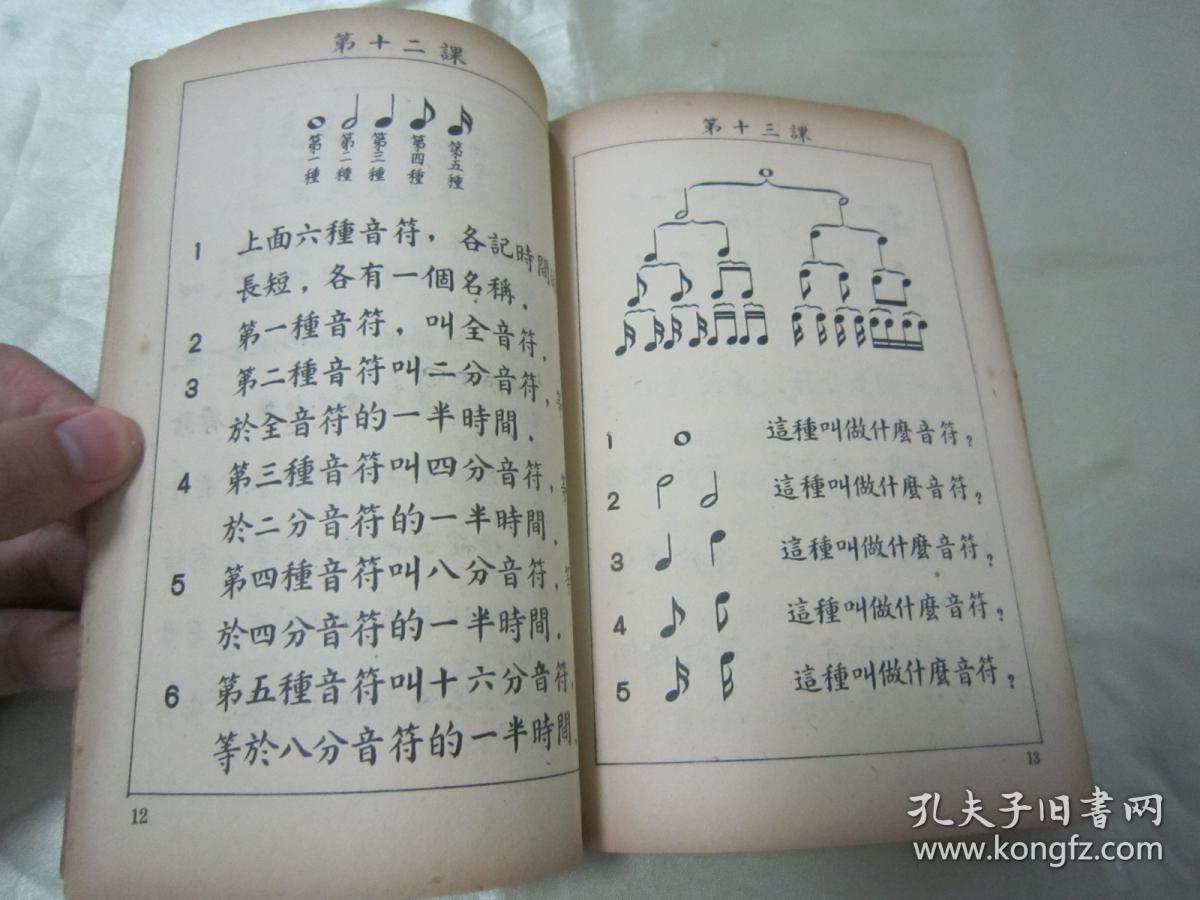 第十二課
第一種
第二種
第三種
第四種
第五種
1 上面六種音符，各記時間
長短，各有一個名稱．
2 第一種音符，叫全音符．
3 第二種音符叫二分音符，等
於全音符的一半時間．
4 第三種音符叫四分音符，等
於二分音符的一半時間．
5 第四種音符叫八分音符，等
於四分音符的一半時間．
6 第五種音符叫十六分音符，
等於八分音符的一半時間．
12
第十三課
1 這種叫做什麼音符？
2 這種叫做什麼音符？
3 這種叫做什麼音符？
4 這種叫做什麼音符？
5 這種叫做什麼音符？
13
孔夫子旧书网
www.kongfz.com